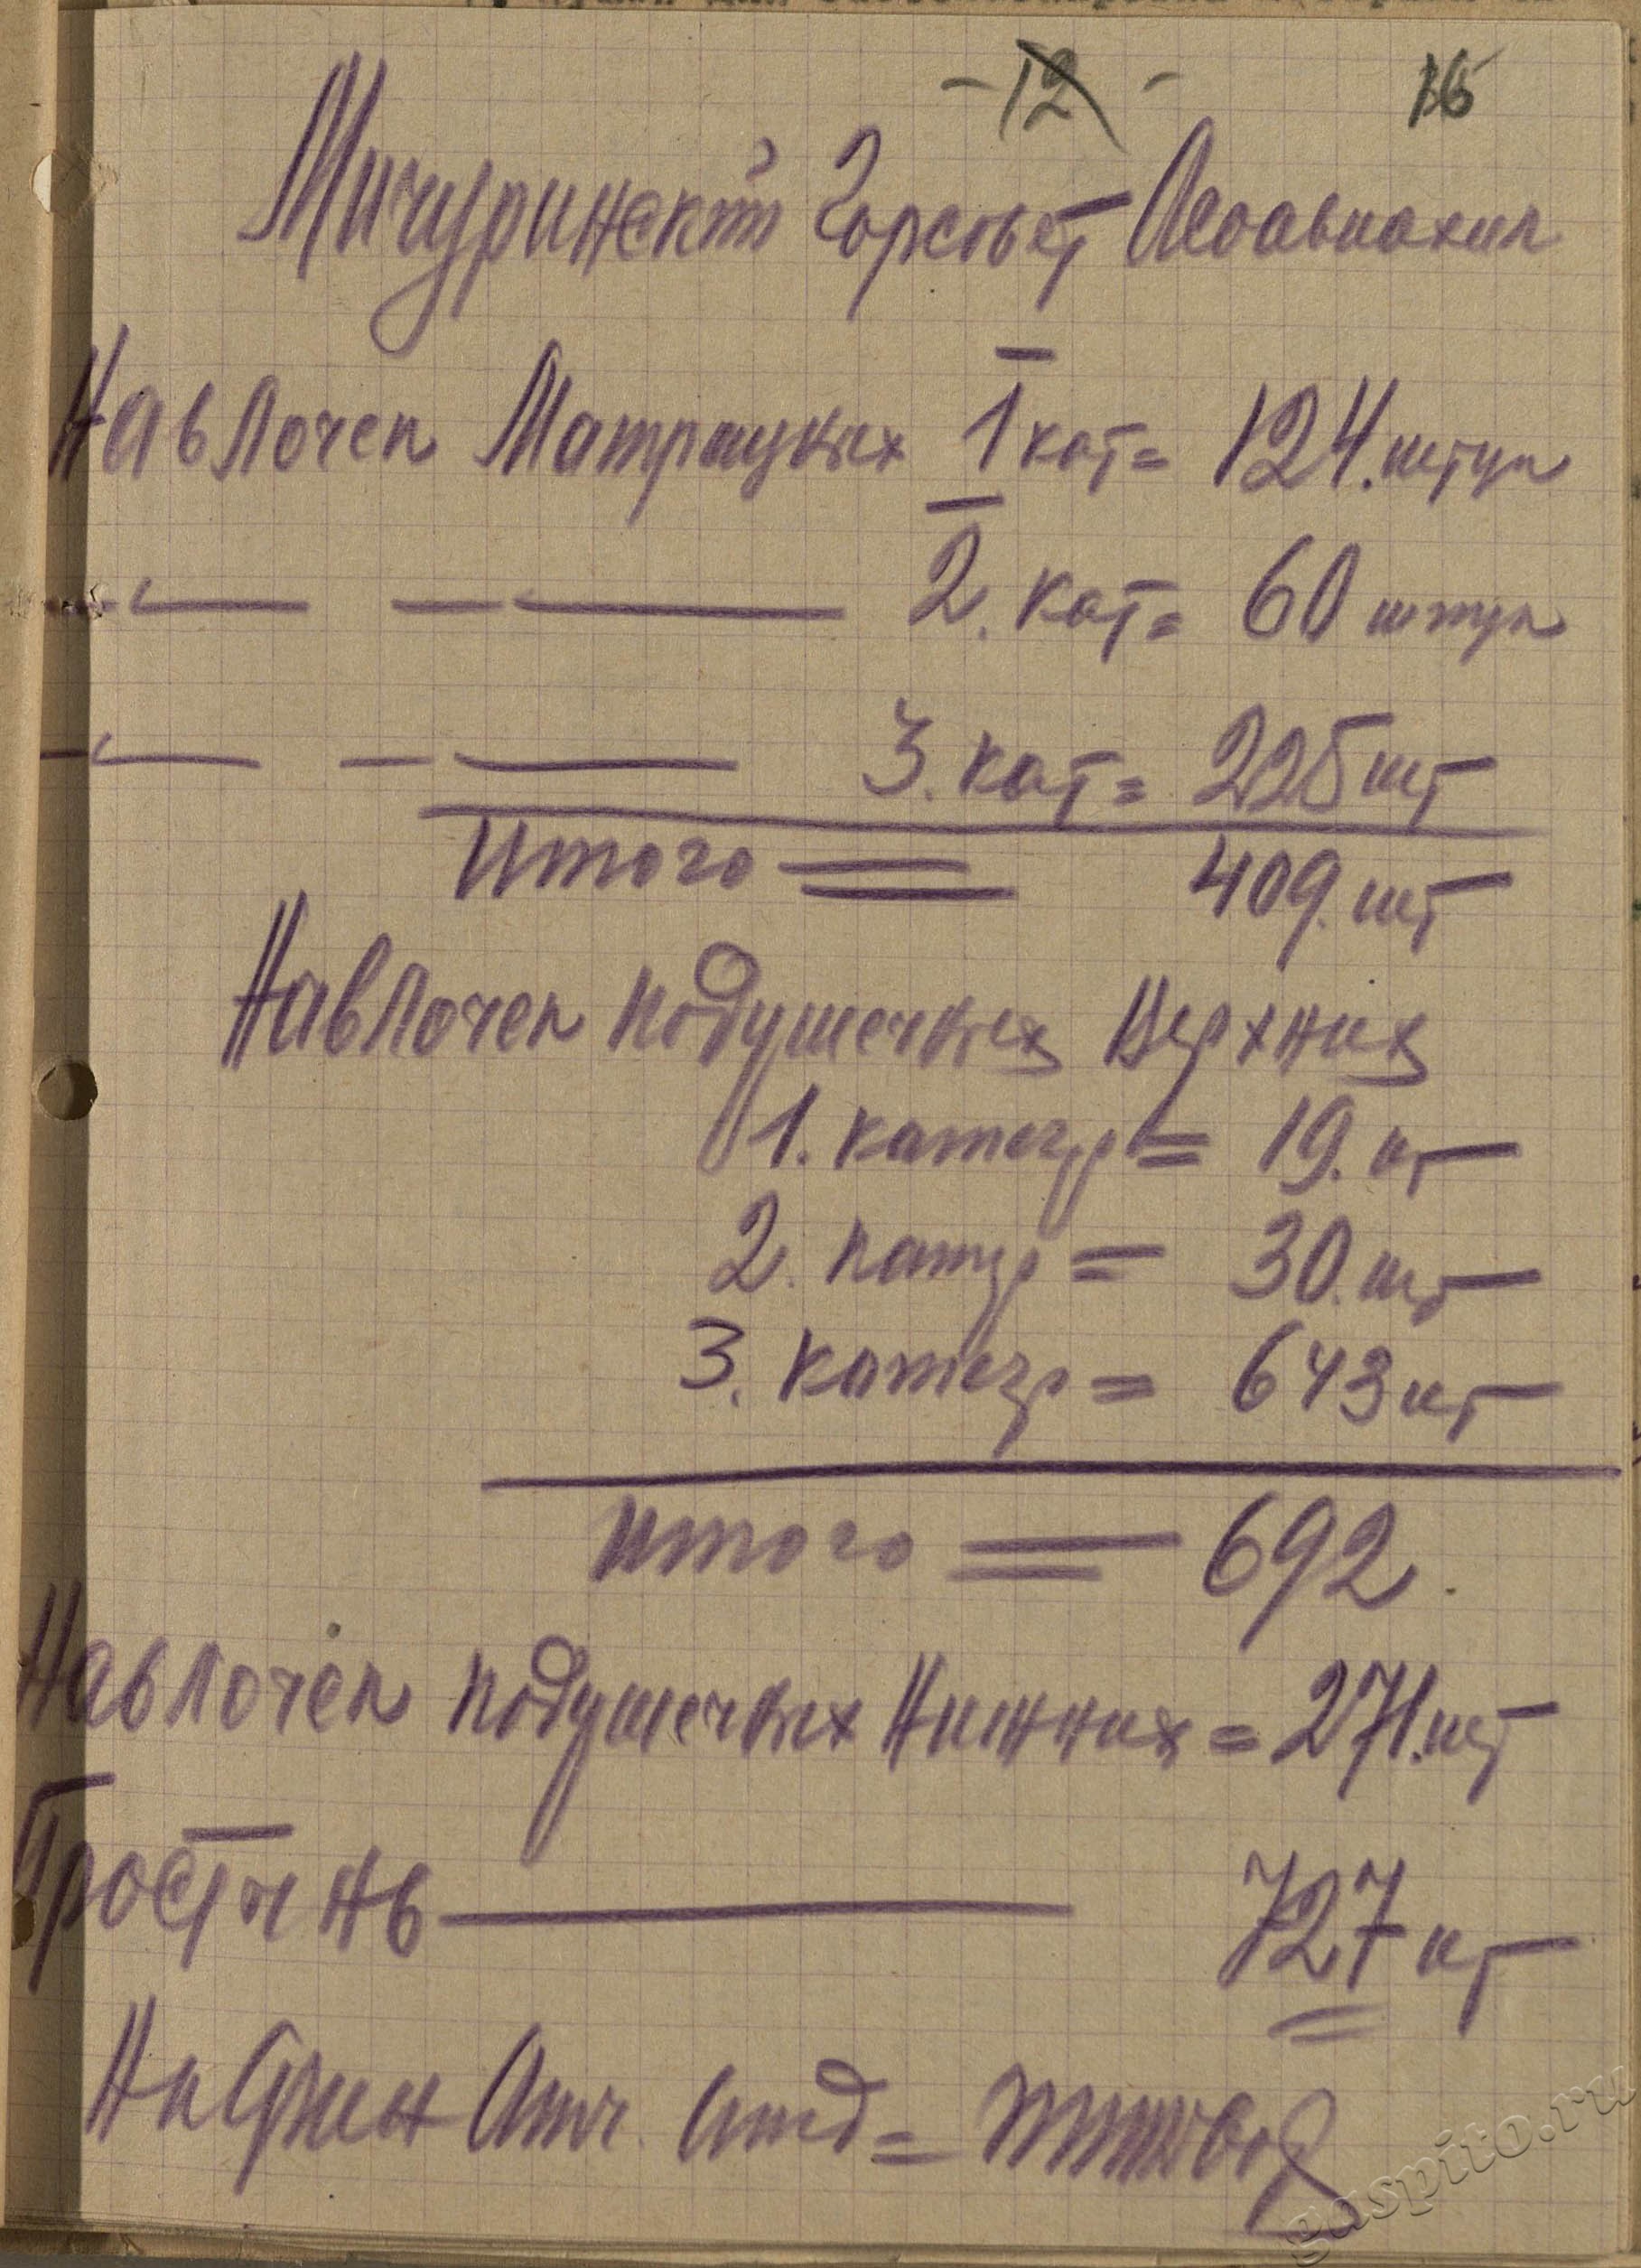 - 12 - 16
Мичуринский Горсовет Асоавиахим
Навлочек Матрацных 1 кат = 124. штук
—"— — — 2. кат = 60 штук
—"— — — 3. кат = 225 шт
Итого = 409. шт
Навлочек подушечных Верхних
1. категр = 19. шт
2. катгр = 30. шт
3. категр = 643 шт
Итого = 692.
Навлочек подушечных Нижних = 271. шт
Простынь — 727 шт
отд =
gaspito.ru